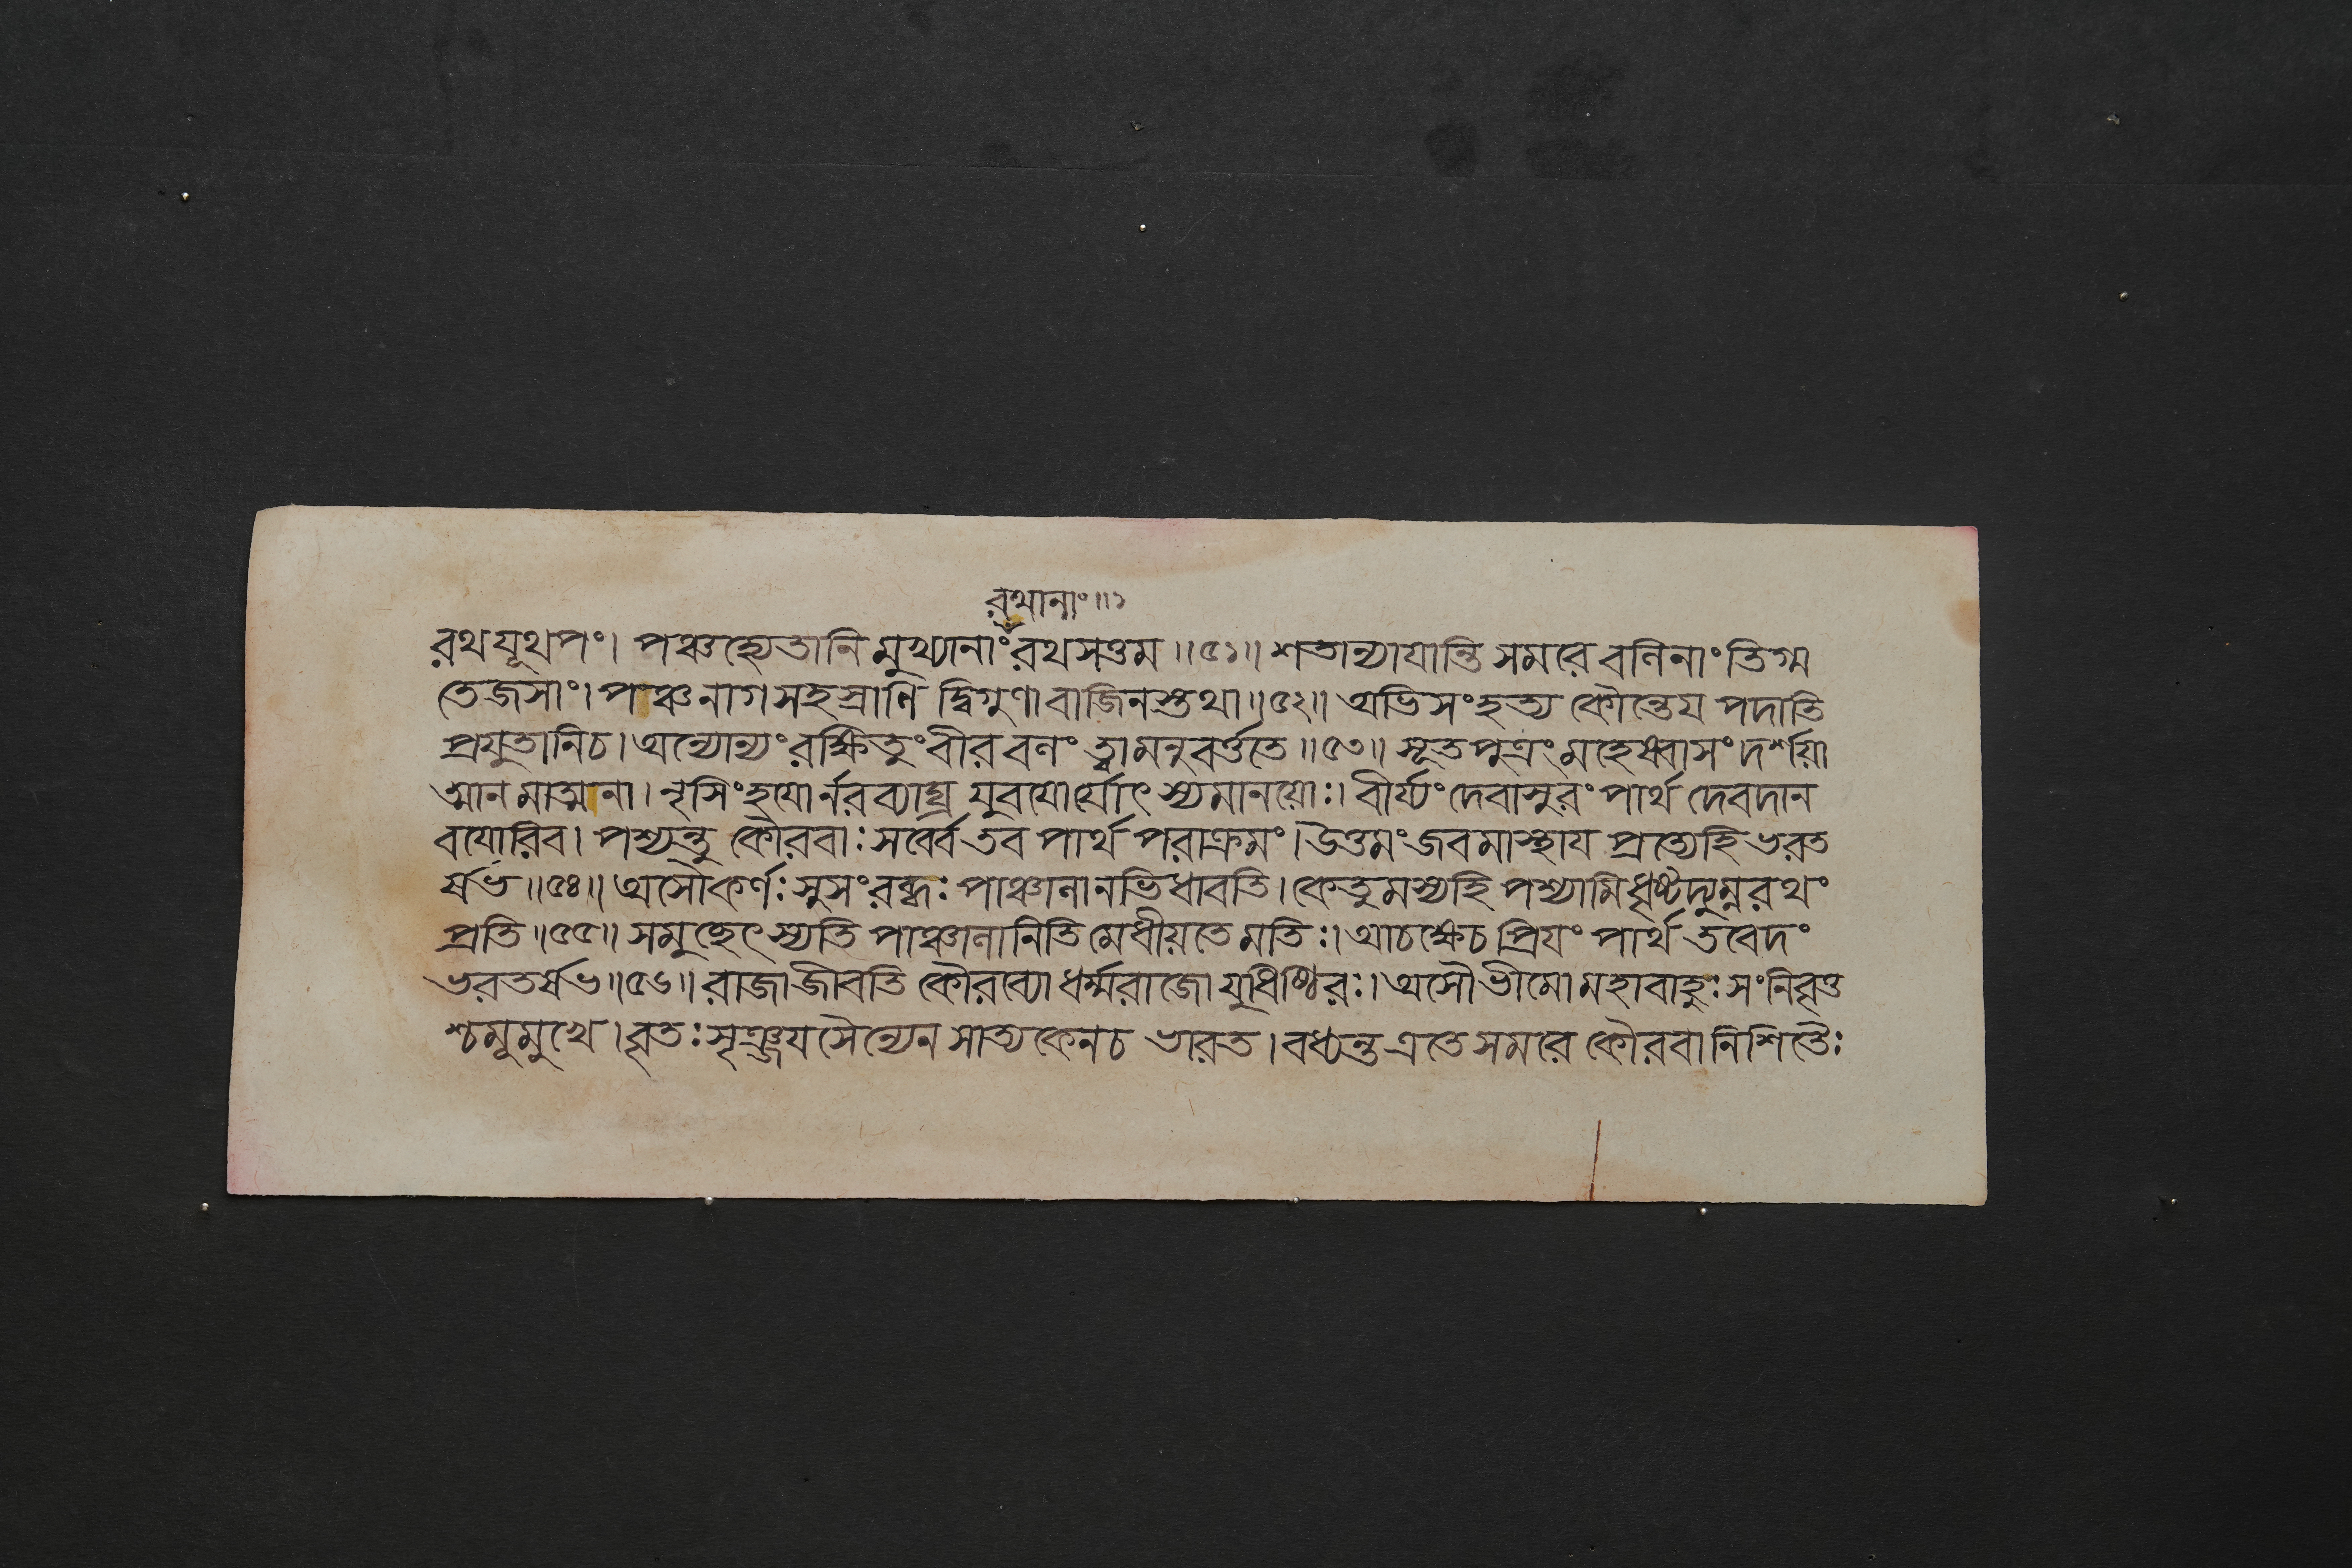 রথানাং॥১
রথযূথপং। পঞ্চহ্যেতানি মুখ্যানাং রথসত্তম॥৫১॥ শতান্যাযান্তি সমরে বলিনাং তিগ্ম
তেজসাং। পঞ্চনাগসহস্রাণি দ্বিগুণা বাজিনস্তথা॥৫২॥ অভিসংহত্য কৌন্তেয পদাতি
প্রযুতানিচ। অন্যোন্যং রক্ষিতুং বীর বলং ত্বামনুবর্ত্ততে॥৫৩॥ সূতপুত্রং মহেষ্বাসং দর্শয়া
আনমাত্মনা। নৃসিংহযোর্নরব্যাঘ্র যুবযোর্যোৎস্যমানয়োঃ। বীর্য্যং দেবাসুরং পার্থ দেবদান
বযোরিব। পশ্যন্তু কৌরবাঃ সর্ব্বে তব পার্থ পরাক্রমং। উত্তমং জবমাস্থায প্রত্যেহি ভরত
র্ষভ॥৫৪॥ অসৌকর্ণঃ সুসংরব্ধঃ পাঞ্চালানভিধাবতি। কেতুমস্যহি পশ্যামি ধৃষ্টদ্যুম্নরথং
প্রতি॥৫৫॥ সমুচ্ছেৎস্যতি পাঞ্চালানিতি মেধীয়তে মতিঃ। আচক্ষেচ প্রিযং পার্থ তবেদং
ভরতর্ষভ॥৫৬॥ রাজা জীবতি কৌরব্যো ধর্ম্মরাজো যুধিষ্ঠিরঃ। অসৌ ভীমো মহাবাহুঃ সংনিবৃত্ত
শ্চমূমুখে। বৃতঃ সৃঞ্জযসৈন্যেন সাত্যকেনচ ভারত। বধ্যন্ত এতে সমরে কৌরবা নিশিতৈঃ